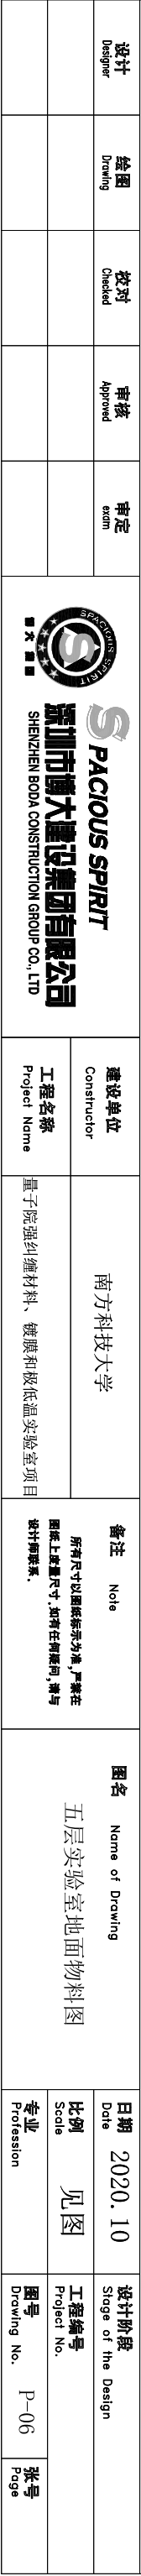 设计
Designer
绘图
Drawing
校对
Checked
审核
Approved
审定
exam
SPACIOUS SPIRIT
S
博大建设
SPACIOUS SPIRIT
深圳市博大建设集团有限公司
SHENZHEN BODA CONSTRUCTION GROUP CO., LTD
建设单位
Constructor
南方科技大学
工程名称
Project Name
量子院强纠缠材料、镀膜和极低温实验室项目
备注 Note
所有尺寸以图纸标示为准,严禁在
图纸上度量尺寸.如有任何疑问,请与
设计师联系.
图名 Name of Drawing
五层实验室地面物料图
日期
Date
2020.10
设计阶段
Stage of the Design
比例
Scale
见图
工程编号
Project No.
专业
Profession
图号
Drawing No.
P-06
张号
Page